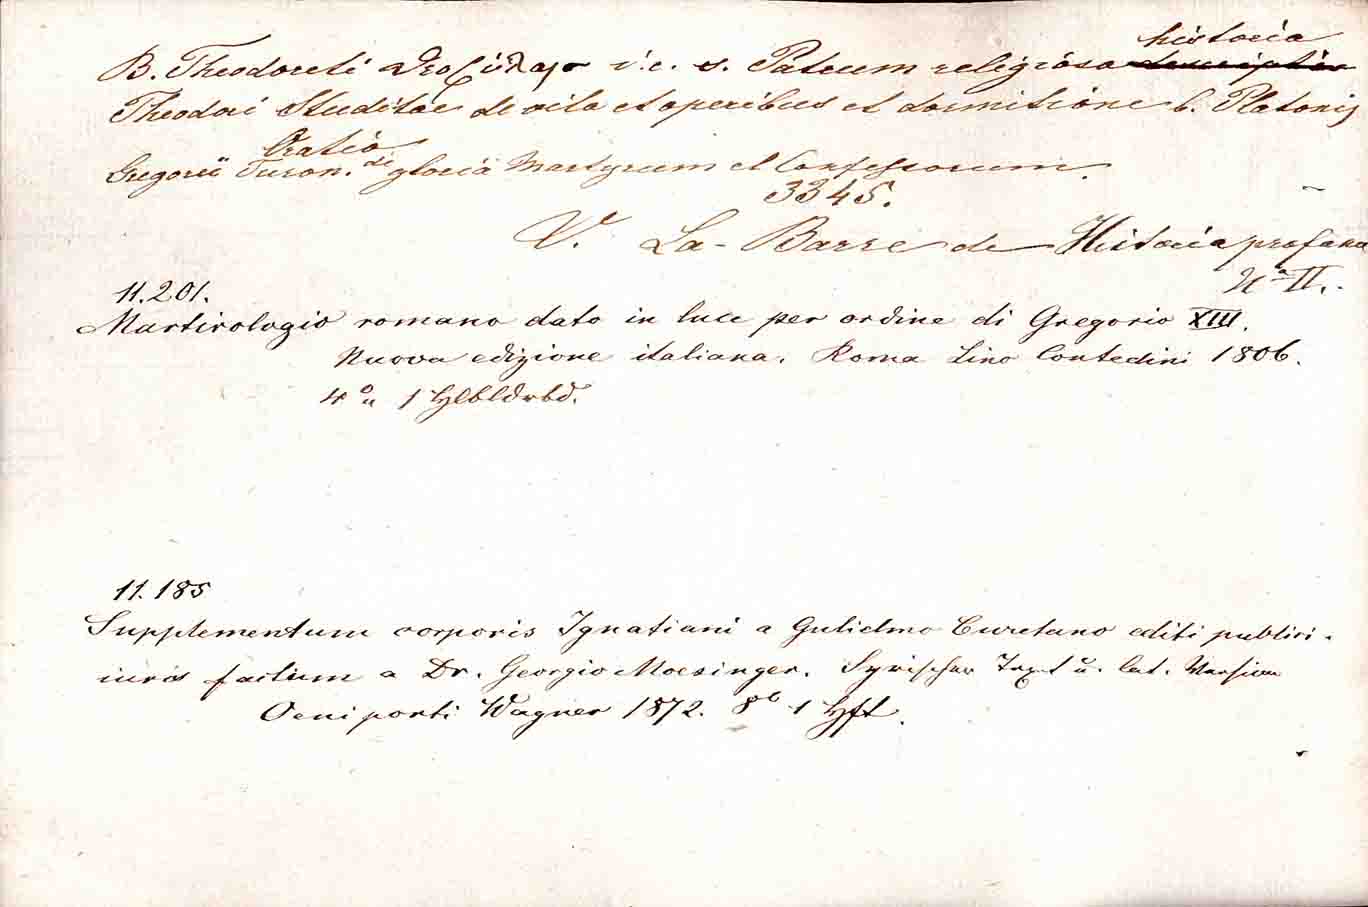 B. Theodoreti Θεοφιλης i.e. s. Patrum religiosa historia
Theodori Studitae de vita et operibus et dormitione b. Platonis
Oratio
Gregorii Turon. de gloria Martyrum et Confessorum.
3345.
V. La-Barre de Historia profana
N° II.
11.201.
Martirologio romano dato in luce per ordine di Gregorio XIII.
Nuova edizione italiana. Roma Lino Contedini 1806.
4° 1 Hlbldrbd.
11.185
Supplementum corporis Ignatiani a Gulielmo Curetano editi publici
iuris factum a Dr. Georgio Moesinger. Syrischer Text u. lat. Version
Oeniponti Wagner 1872. 8° 1 Hft.